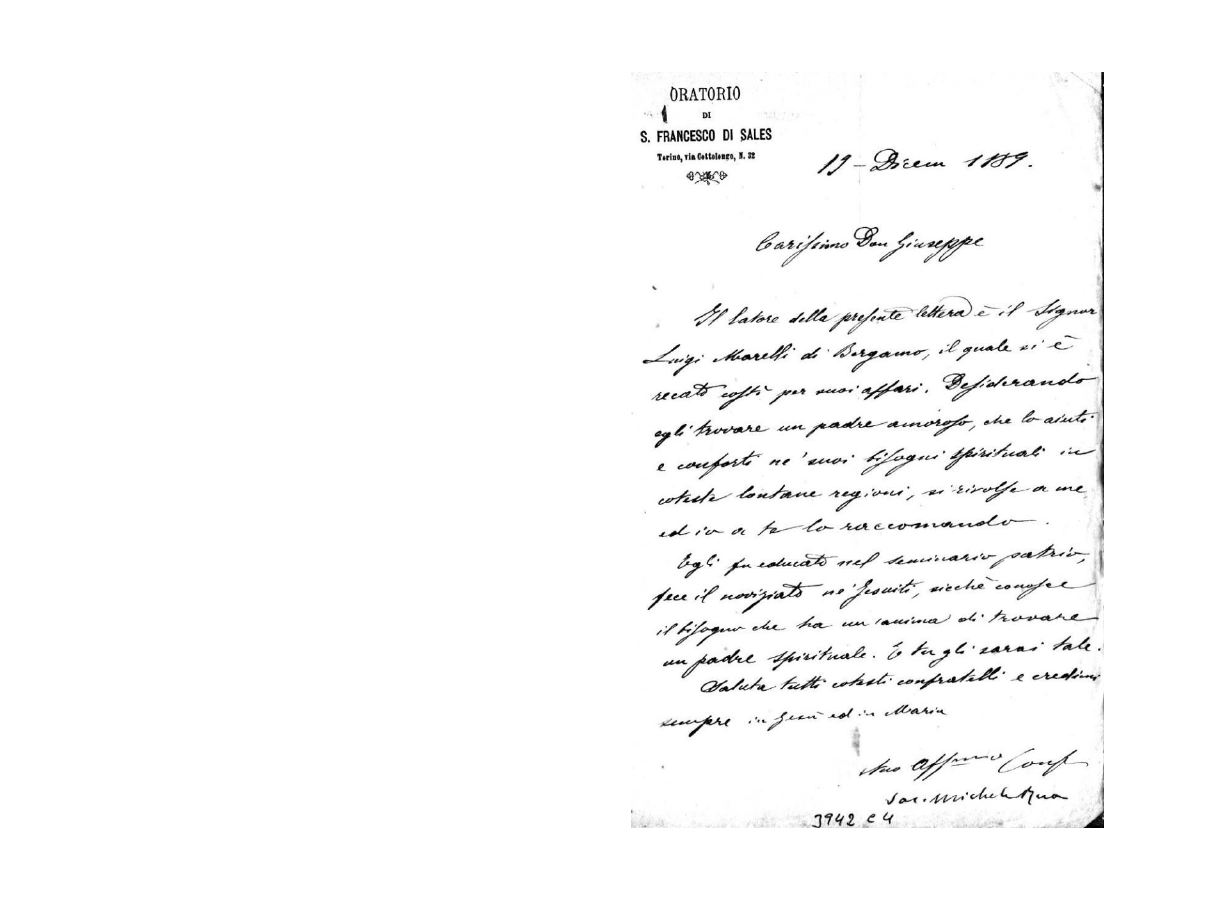 ORATORIO
DI
S. FRANCESCO DI SALES
Torino, via Cottolengo, N. 32
19 - Dicem 1889.
Carissimo Don Giuseppe
Il latore della presente lettera è il Signor
Luigi Morelli di Bergamo, il quale si è
recato costì per suoi affari. Desiderando
egli trovare un padre amoroso, che lo aiuti
e conforti ne' suoi bisogni spirituali in
coteste lontane regioni, si rivolse a me
ed io a te lo raccomando.
Egli fu educato nel seminario patrio,
fece il noviziato ne' Gesuiti, sicchè conosce
il bisogno che ha un'anima di trovare
un padre spirituale. E tu gli sarai tale.
Saluta tutti cotesti confratelli e credimi
sempre in Gesù ed in Maria
Tuo Aff.mo Conf
Sac. Michele Rua
3942 C 4